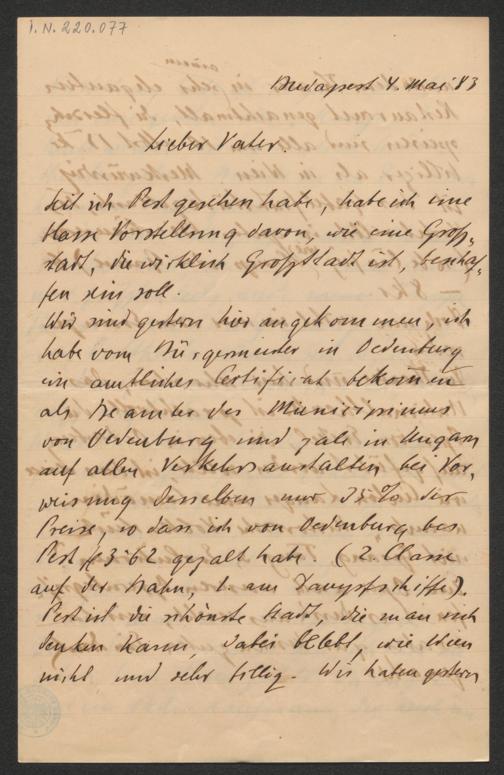 I.N. 220.077
Budapest 4. Mai 83
Lieber Vater.
Seit ich Pest gesehen habe, habe ich eine
klare Vorstellung davon, wie eine Groß-
stadt, die wirklich Großstadt ist, beschaf-
fen sein soll.
Wir sind gestern hier angekommen, ich
habe vom Bürgermeister in Oedenburg
ein amtliches Certificat bekommen
als Beamter des Municipiums
von Oedenburg und zale in Ungarn
auf allen Verkehrsanstalten bei Vor-
weisung desselben nur 33% der
Preise, so dass ich von Oedenburg bis
Pest f 3·62 gezalt habe. (2. Classe
auf der Bahn, 1. am Dampfschiffe).
Pest ist die schönste Stadt, die man sich
denken kann, dabei belebt, wie Wien
nicht und sehr billig. Wir haben gestern